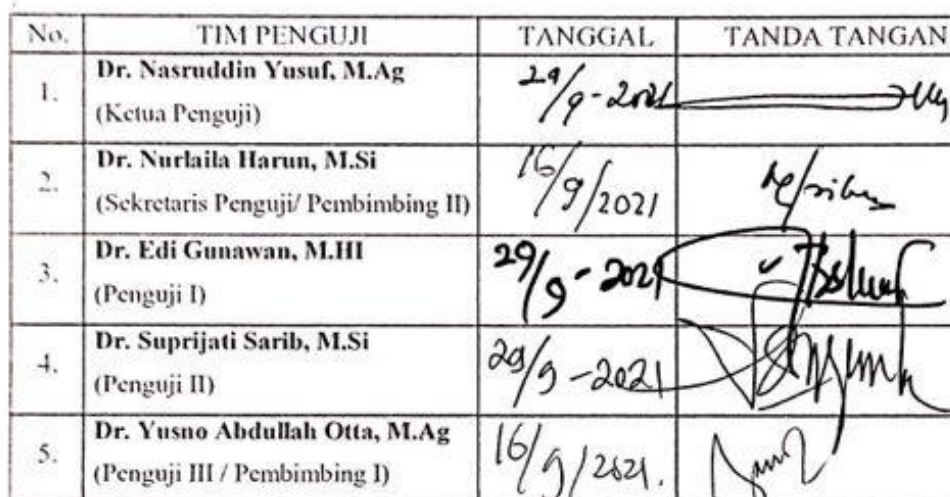 No. TIM PENGUJI TANGGAL TANDA TANGAN
1. Dr. Nasruddin Yusuf, M.Ag
(Ketua Penguji)
29/9-2021
2. Dr. Nurlaila Harun, M.Si
(Sekretaris Penguji/ Pembimbing II)
16/9/2021
3. Dr. Edi Gunawan, M.HI
(Penguji I)
29/9-2021
4. Dr. Suprijati Sarib, M.Si
(Penguji II)
29/9-2021
5. Dr. Yusno Abdullah Otta, M.Ag
(Penguji III / Pembimbing I)
16/9/2021.